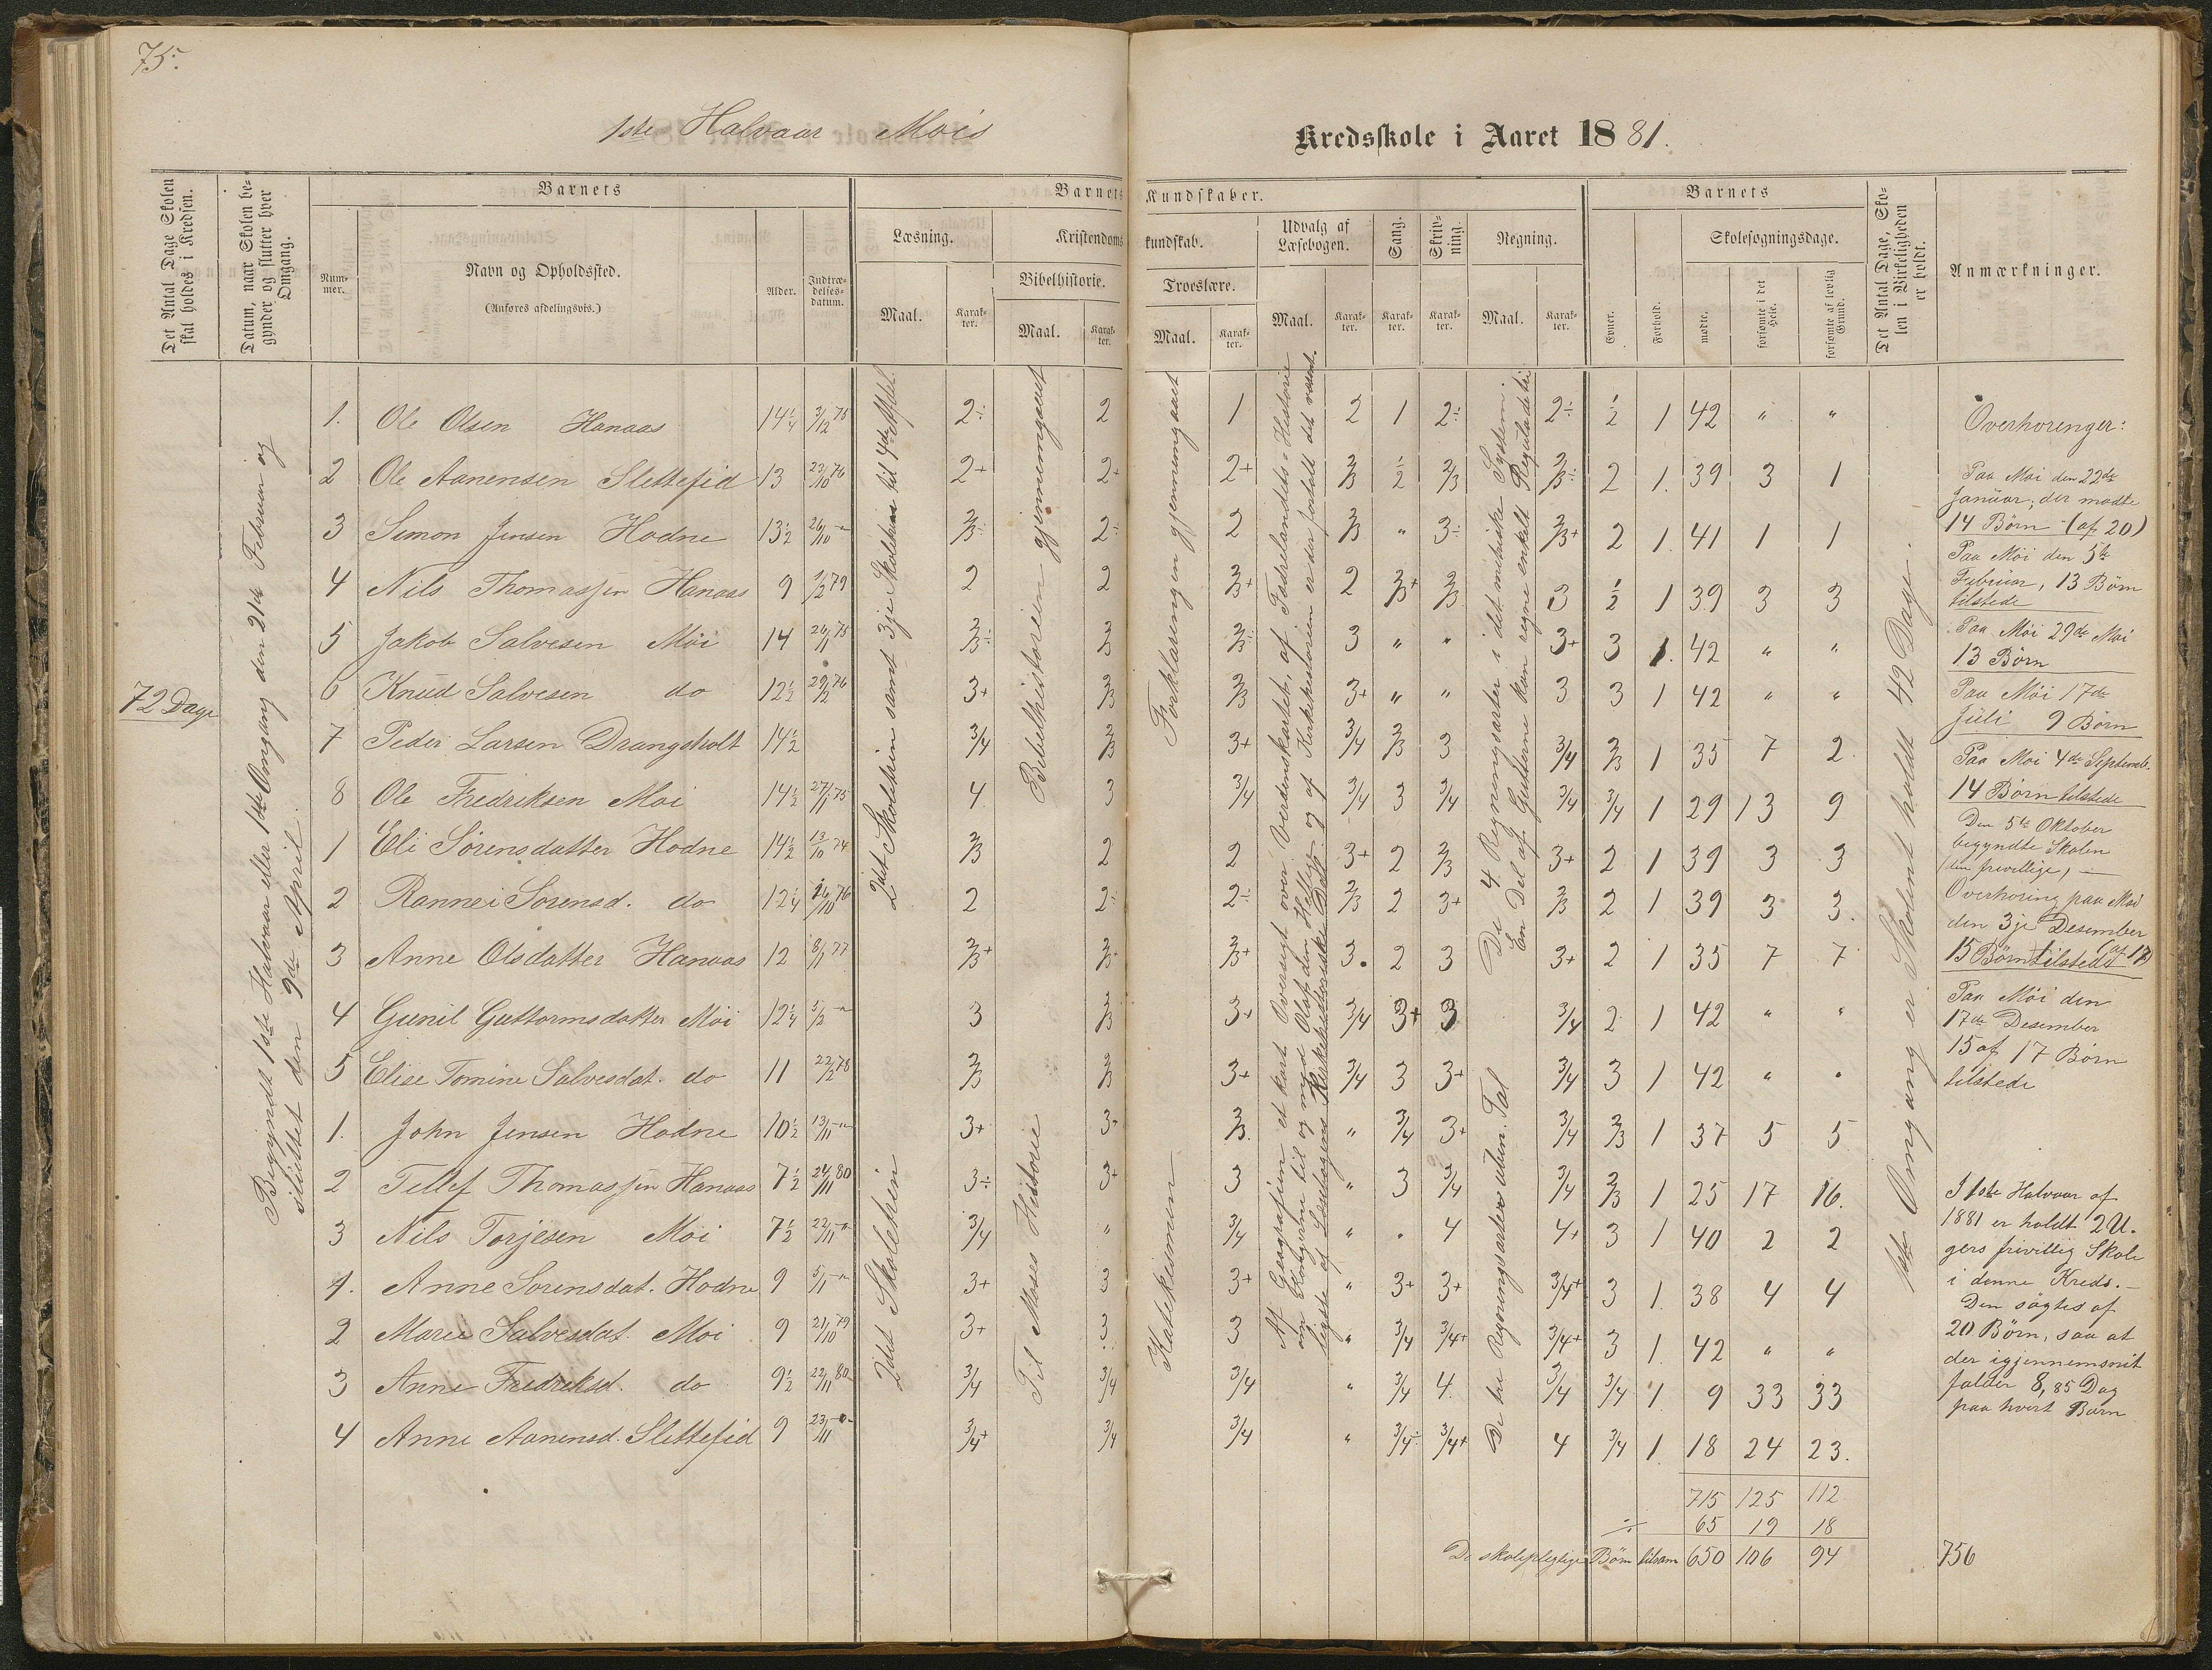 75.
1ste Halvaar Mois
Kredsskole i Aaret 1881.
Det Antal Dage Skolen skal holdes i Kredsen.
Datum, naar Skolen begynder og slutter hver Omgang.
Barnets
Nummer.
Navn og Opholdssted.
(Anføres afdelingsvis.)
Alder.
Indtrædelsesdatum.
Barnets Kundskaber.
Læsning.
Maal.
Karakter.
Kristendomskundskab.
Bibelhistorie.
Maal.
Karakter.
Troeslære.
Maal.
Karakter.
Udvalg af Læsebogen.
Maal.
Karakter.
Sang.
Karakter.
Skrivning.
Karakter.
Regning.
Maal.
Karakter.
Barnets
Evner.
Forhold.
Skolesøgningsdage.
mødte.
forsømte i det Hele.
forsømte af lovlig Grund.
Det Antal Dage, Skolen i Virkeligheden er holdt.
Anmærkninger.
72 Dage
Begyndt 1ste Halvaar eller 1ste Omgang den 21de Februar og
sluttet den 9de April.
2det Skoletrin samt 3je Skoletrin til 4de Afdel.
2det Skoletrin
Bibelhistorien gjennemgaaet
Til Moses Historie
Forklaringen gjennemgaaet
Katekismum
Af Geografien et kort Oversigt over Verdenskartet, af Fædrelandets Historie
om Kongerne til og med Olaf den Hellige og af Kirkehistorien er der fortalt det væsent-
ligste af Læsebogens Kirkehistoriske Del.
De 4 Regningsarter i det metriske System.
En Del af Gutterne kan regne enkelt Reguladetri
De tre Regningsarter uben. Tal
1ste Omgang er Skolen holdt 42 Dage.
1. Ole Olsen Hanaas 14¼ 3/12 75 2÷ 2 1 2 1 2÷ 2÷ ½ 1 42 " "
2 Ole Aanensen Slettefid 13 23/10 76 2+ 2+ 2+ 2/3 ½ 2/3 2/3÷ 2 1. 39 3 1
3 Simon Jensen Hodne 13½ 26/10 -"- 2/3÷ 2÷ 2 2/3 " 3÷ 2/3+ 2 1. 41 1 1
4 Nils Thomassen Hanaas 9 1/2 79 2 2 2/3+ 2 2/3+ 2/3 3 ½ 1 39 3 3
5 Jakob Salvesen Moi 14 26/1 75 2/3÷ 2/3 2/3÷ 3 " " 3+ 3 1. 42 " "
6 Knud Salvesen do 12½ 29/2 76 3+ 2/3 2/3 3+ " " 3 3 1 42 " "
7 Peder Larsen Drangsholt 14½ 3/4 2/3 3+ 3/4 2/3 3 3/4 2/3 1 35 7 2
8 Ole Fredriksen Moi 14½ 27/1 75 4 3 3/4 3/4 3 3/4 3/4 3/4 1 29 13 9
1 Eli Sørensdatter Hodne 14½ 13/10 74 2/3 2 2 3+ 2 2/3 3+ 2 1 39 3 3
2 Rannei Sørensd. do 12¼ 26/10 76 2 2÷ 2÷ 2/3 2 3+ 2/3 2 1 39 3 3.
3 Anne Olsdatter Hanaas 12 8/1 77 2/3+ 2/3+ 2/3+ 3. 2 3 3+ 2 1 35 7 7
4 Gunil Guttormsdatter Moi 12¼ 3/2 -"- 3 2/3 3+ 3/4 3+ 3 3/4 2 1 42 " "
5 Elise Tomine Salvesdat. do 11 22/2 78 2/3 2/3 3+ 3/4 3 3+ 3/4 3 1 42 " "
1. John Jensen Hodne 10½ 13/11 -"- 3+ 3+ 2/3 " 3/4 3+ 3/4 2/3 1 37 5 5
2 Tellef Thomassen Hanaas 7½ 24/11 80 3÷ 3+ 3 " 3 3/4 3/4 2/3 1 25 17 16.
3 Nils Torjesen Moi 7½ 22/11 -"- 3/4 " 3/4 " " 4 4+ 3 1 40 2 2
1. Anne Sørensdat. Hodne 9 5/1 -"- 3+ 3 3+ " 3+ 3+ 3/4+ 3 1. 38 4 4
2 Marie Salvesdat. Moi 9 21/10 79 3+ 3 3 " 3/4 3/4+ 3/4+ 3 1. 42 " "
3 Anne Fredriksd. do 9½ 22/11 80 3/4 3/4 3/4 " 3/4 4. 3/4 3/4 1. 9 33 33
4 Anne Aanensd. Slettefid 9 23/11 -"- 3/4+ 3/4 3/4 " 3/4÷ 3/4+ 4 3/4 1. 18 24 23.
715 125 112
÷ 65 19 18
De skolepligtige Børn tilsam 650 106 94 756
Overhøringer:
Paa Moi den 22de
Januar, der mødte
14 Børn (af 20)
Paa Moi den 5te
Februar, 13 Børn
tilstede
Paa Moi 29de Mai
13 Børn
Paa Moi 17de
Juli 9 Børn
Paa Moi 4de Septemb.
14 Børn tilstede
Den 5te Oktober
begyndte Skolen
(den frivillige) —
Overhøring paa Moi
den 3je Desember
15 Børn tilstede (af 17)
Paa Moi den
17de Desember
15 af 17 Børn
tilstede
I 1ste Halvaar af
1881 er holdt 2 U-
gers frivillig Skole
i denne Kreds. —
Den søgtes af
20 Børn, saa at
der igjennemsnit
falder 8,85 Dag
paa hvert Barn